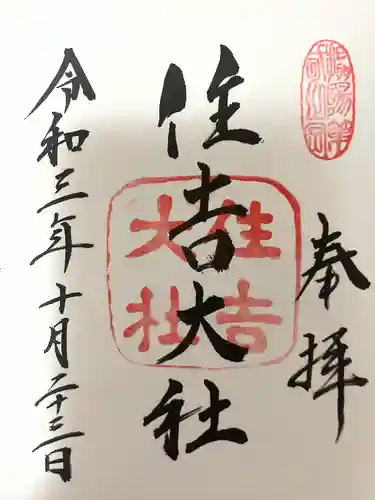 奉拝
住吉大社
住吉
大社
令和三年十月二十三日